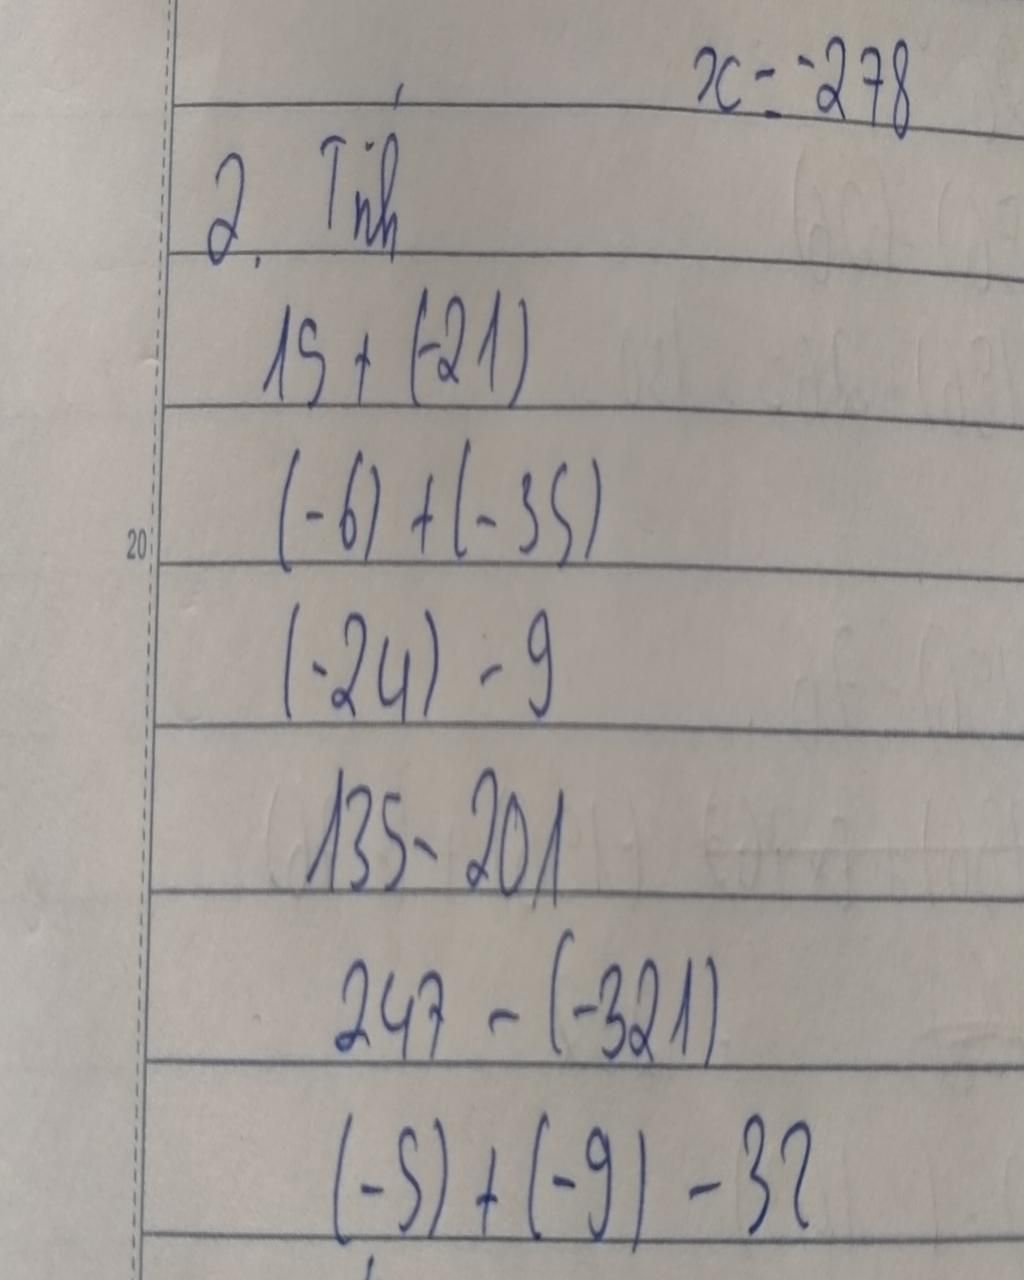 x = -278
2. Tính
15 + (-21)
(-6) + (-35)
20
(-24) - 9
135 - 201
247 - (-321)
(-5) + (-9) - 32